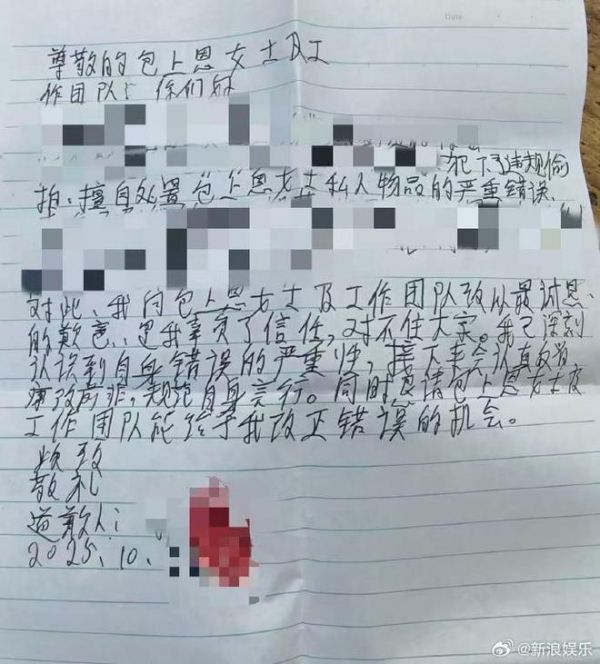 尊敬的包上恩女士及工
作团队：你们好
犯下了违规偷
拍、擅自处置包上恩女士私人物品的严重错误、
对此、我向包上恩女士及工作团队致以最诚恳
的歉意、是我辜负了信任，对不住大家。我已深刻
认识到自身错误的严重性，接下来会认真反省，
痛改前非，规范自身言行。同时恳请包上恩女士及
工作团队能给予我改正错误的机会。
顺致
敬礼
道歉人：
2025、10、
@新浪娱乐